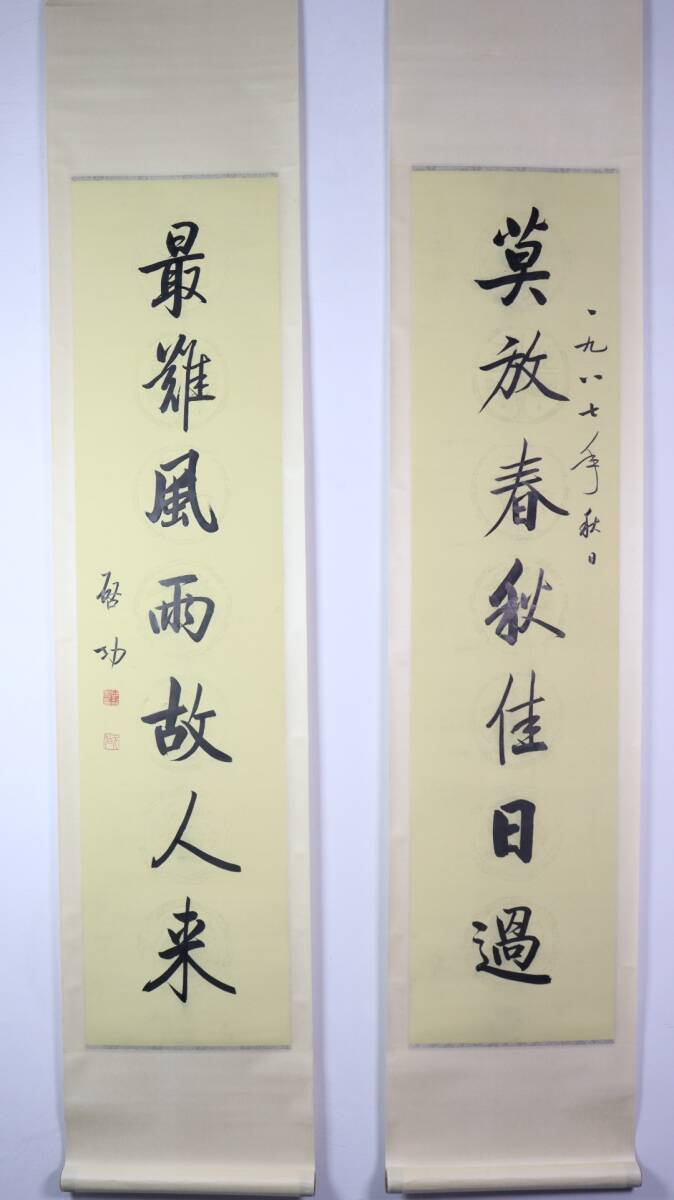 一九八七年秋日
莫放春秋佳日過
最難風雨故人来
啟功